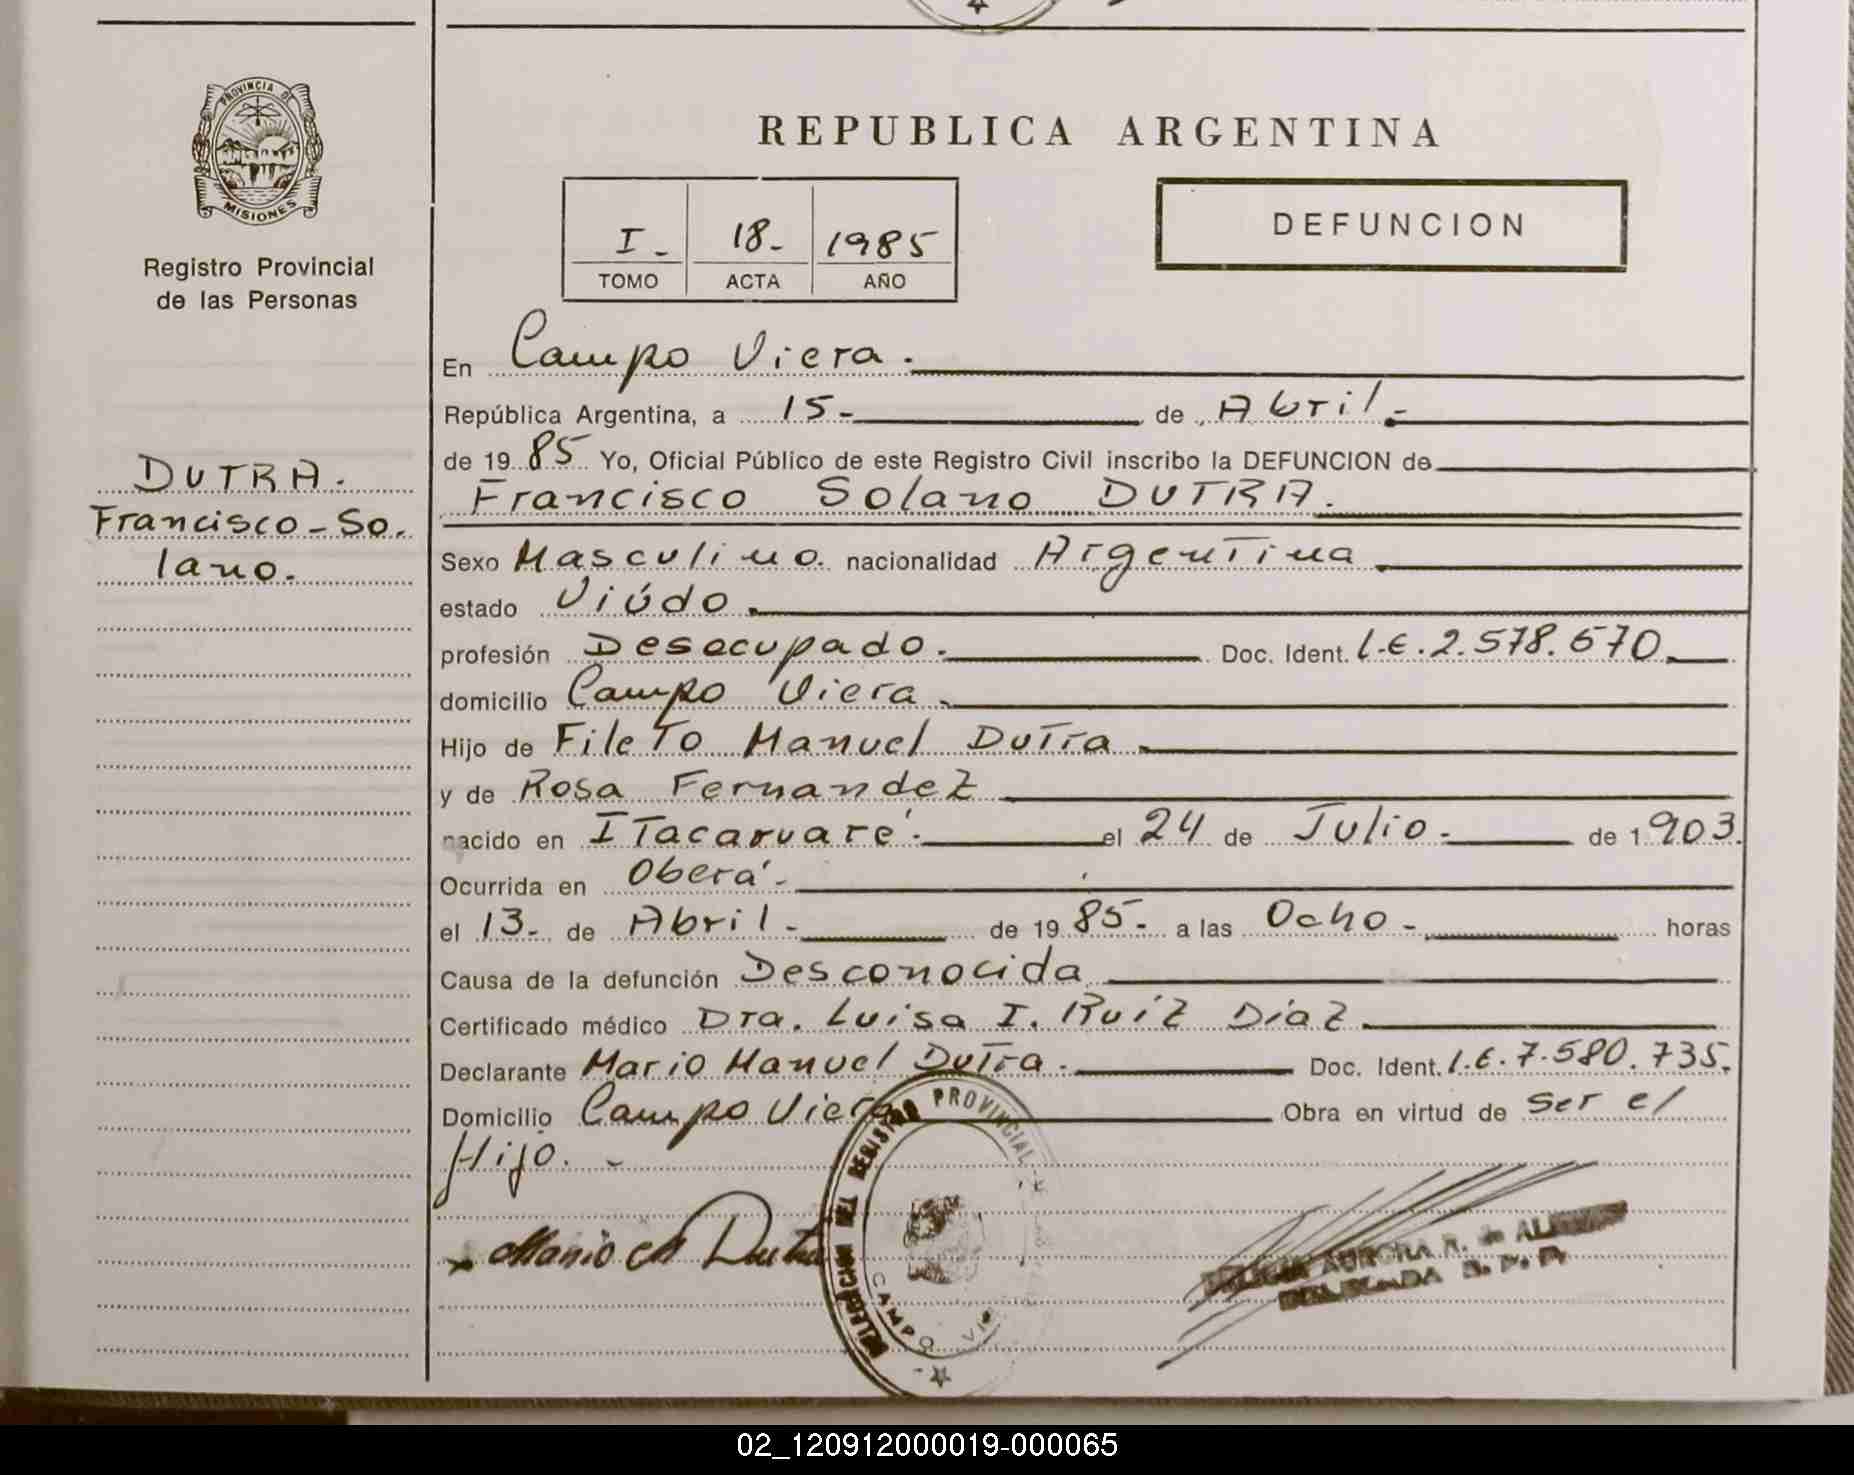 PROVINCIA DE
MISIONES
Registro Provincial
de las Personas
DUTRA.
Francisco-So.
lano.
REPUBLICA ARGENTINA
I- 18- 1985
TOMO ACTA AÑO
DEFUNCION
En Campo Viera.
República Argentina, a 15- de Abril-
de 1985 Yo, Oficial Público de este Registro Civil inscribo la DEFUNCION de
Francisco Solano DUTRA.
Sexo Masculino. nacionalidad Argentina
estado Viúdo.
profesión Desocupado. Doc. Ident. l.E.2.578.670
domicilio Campo Viera
Hijo de Fileto Manuel Dutra
y de Rosa Fernandez
nacido en ITacaruaré. el 24 de Julio- de 1903.
Ocurrida en Oberá-
el 13- de Abril- de 1985- a las Ocho- horas
Causa de la defunción Desconocida
Certificado médico Dra. Luisa I. Ruíz Díaz
Declarante Mario Manuel Dutra. Doc. Ident. l.E.7.580.735.
Domicilio Campo Viera Obra en virtud de Ser el
Hijo. -
Mario M Dutra
DEL REGISTRO PROVINCIAL
CAMPO
AURORA R. de
DELEGADA R. P. P.
02_120912000019-000065